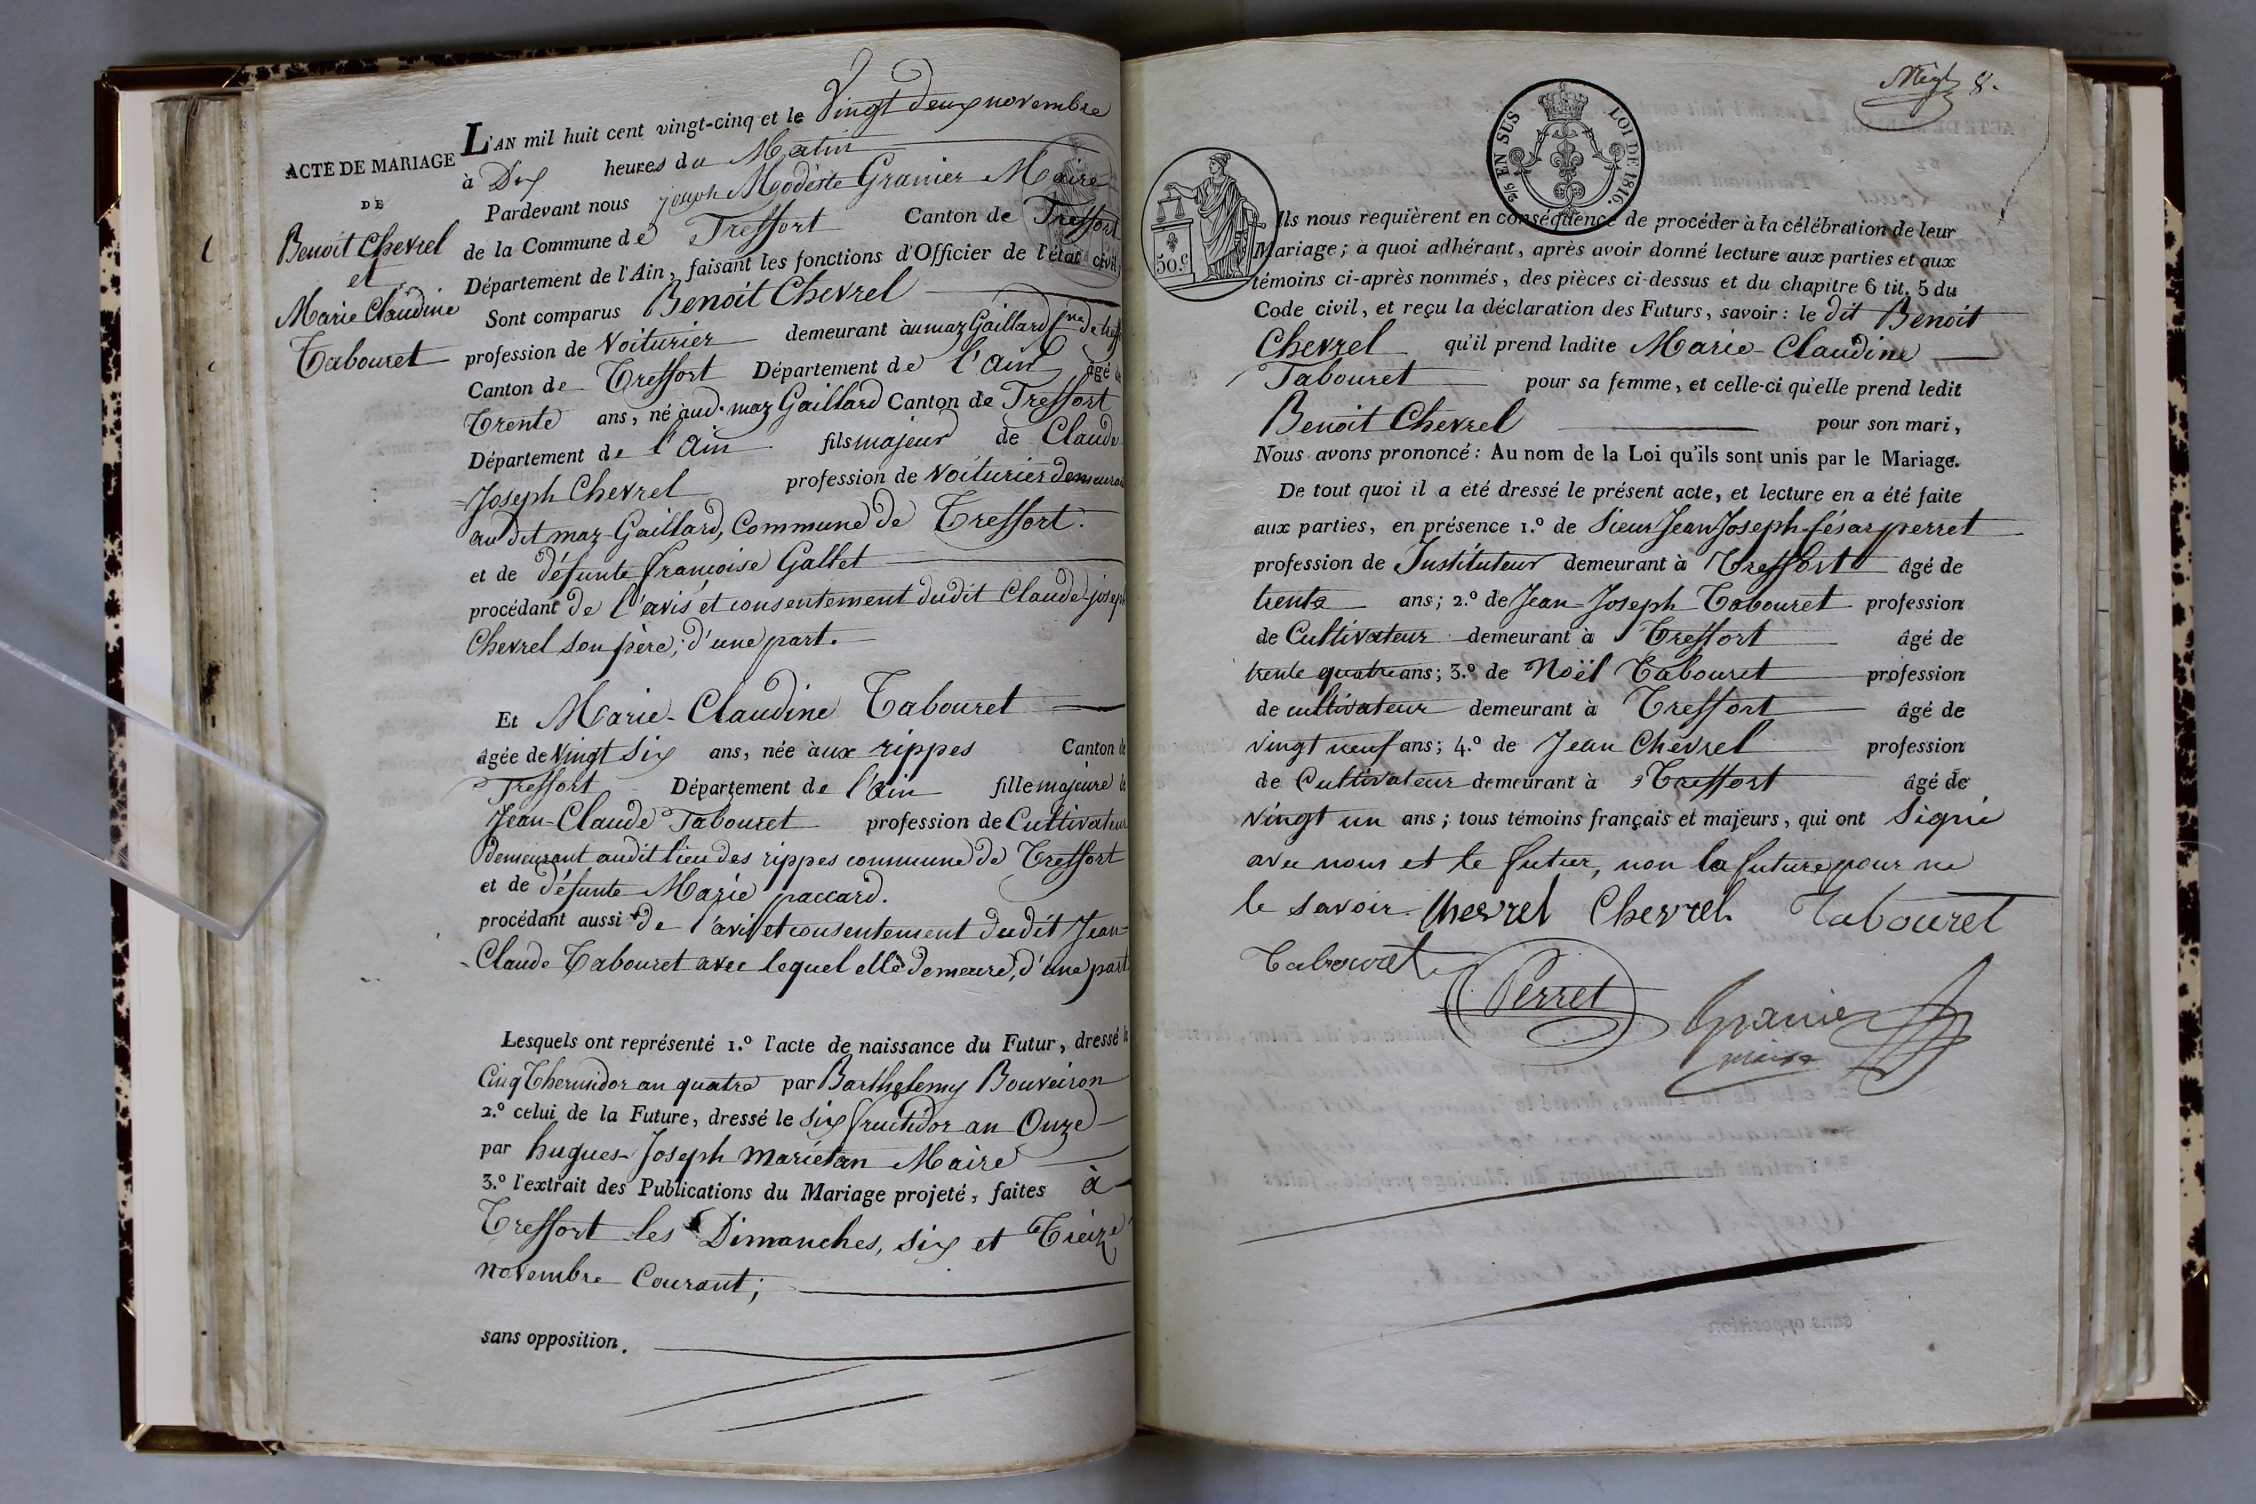 ACTE DE MARIAGE
DE
Benoit Chevrel
et
Marie Claudine
Tabouret
L'AN mil huit cent vingt-cinq et le Vingt deux novembre
à Dix heures du Matin
Pardevant nous joseph Modeste Granier Maire
de la Commune de Treffort Canton de Treffort
Département de l'Ain, faisant les fonctions d'Officier de l'état civil,
Sont comparus Benoit Chevrel
profession de Voiturier demeurant au maz Gaillard
Canton de Treffort Département de l'ain âgé de
Trente ans, né aud. maz Gaillard Canton de Treffort
Département de l'ain fils majeur de Claude
Joseph Chevrel profession de Voiturier demeurant
audit maz Gaillard, Commune de Treffort.
et de défunte francoise Gallet
procédant de l'avis et consentement dudit Claude joseph
Chevrel son père; d'une part.
Et Marie-Claudine Tabouret
âgée de Vingt Six ans, née aux rippes Canton de
Treffort Département de l'ain fille majeure de
Jean-Claude Tabouret profession de Cultivateur
demeurant audit lieu des rippes commune de Treffort
et de défunte Marie paccard.
procédant aussi de l'avis et consentement dudit Jean-
Claude Tabouret avec lequel elle demeure, d'une part
Lesquels ont représenté 1.º l'acte de naissance du Futur, dressé le
Cinq Thermidor an quatre par Barthelemy Bouveiron
2.º celui de la Future, dressé le six fructidor an Onze
par hugues-Joseph marietan Maire
3.º l'extrait des Publications du Mariage projeté, faites à
Treffort les Dimanches, six et Treize
novembre Courant;
sans opposition.
8.
2/5 EN SUS LOI DE 1816.
50.c
Ils nous requièrent en conséquence de procéder à la célébration de leur
Mariage; à quoi adhérant, après avoir donné lecture aux parties et aux
témoins ci-après nommés, des pièces ci-dessus et du chapitre 6 tit. 5 du
Code civil, et reçu la déclaration des Futurs, savoir: le dit Benoit
Chevrel qu'il prend ladite Marie-Claudine
Tabouret pour sa femme, et celle-ci qu'elle prend ledit
Benoit Chevrel pour son mari,
Nous avons prononcé: Au nom de la Loi qu'ils sont unis par le Mariage.
De tout quoi il a été dressé le présent acte, et lecture en a été faite
aux parties, en présence 1.º de Sieur Jean Joseph César perret
profession de Instituteur demeurant à Treffort âgé de
trente ans; 2.º de Jean-Joseph Tabouret profession
de Cultivateur demeurant à Treffort âgé de
trente quatre ans; 3.º de Noël Tabouret profession
de cultivateur demeurant à Treffort âgé de
vingt neuf ans; 4.º de Jean Chevrel profession
de Cultivateur demeurant à Treffort âgé de
vingt un ans; tous témoins français et majeurs, qui ont Signé
avec nous et le futur, non la future pour ne
le savoir. Chevrel Chevrel Tabouret
Tabouret
Perret
Granier
maire